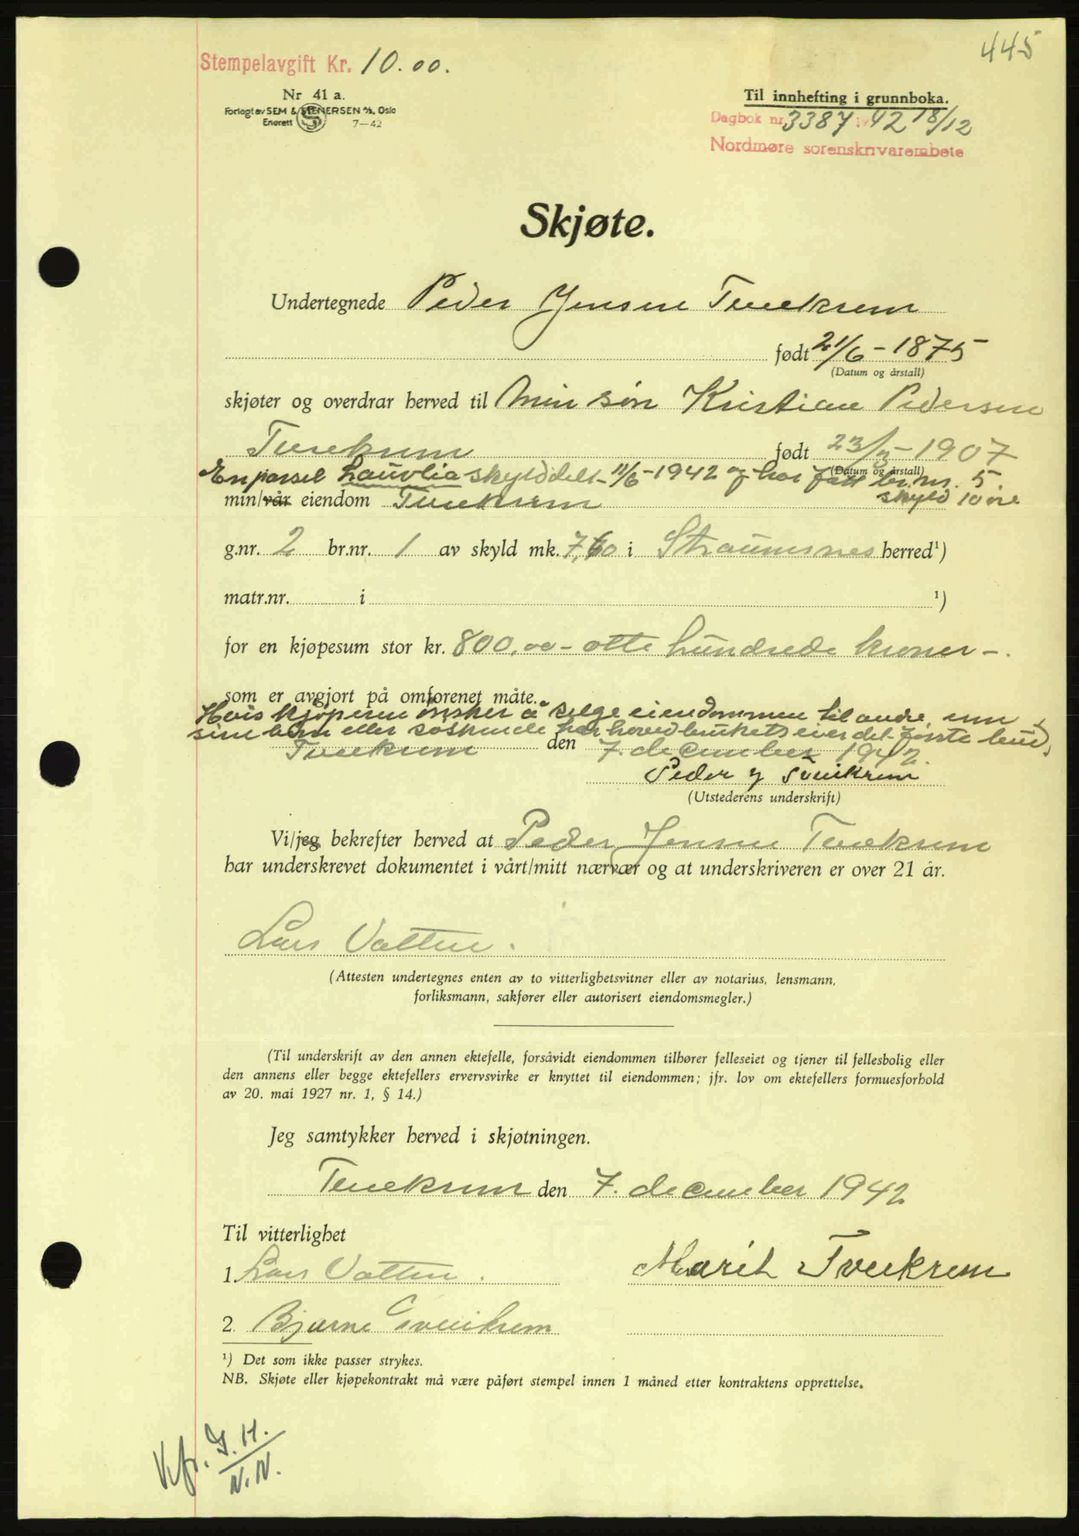 445
Stempelavgift Kr. 10.00.
Nr 41 a.
Forlagt av SEM & STENERSEN A/S, Oslo
Enerett 7—42
Til innhefting i grunnboka.
Dagbok nr. 3387 42 18/12
Nordmøre sorenskrivarembete
Skjøte.
Undertegnede Peder Jensen Tveekrem
født 21/6 - 1875
(Datum og årstall)
skjøter og overdrar herved til Min søn Kristian Pedersen
Tveekrem født 23/ - 1907
(Datum og årstall)
En parsel Lauvlia skylddelt 11/6 - 1942 og har fått br.nr. 5.
skyld 10 øre
min/vår eiendom Tveekrem
g.nr. 2 br.nr. 1 av skyld mk. 7,60 i Straumsnes herred¹)
matr.nr. i ¹)
for en kjøpesum stor kr. 800,00 - otte hundrede kroner -.
som er avgjort på omforenet måte.
Hvis kjøperen ønsker å selge eiendommen til andre enn
sine barn eller søskende har hovedbrukets eier det første bud.
Tveekrem den 7. december 1942.
Peder J Tveikrem
(Utstederens underskrift)
Vi/jeg bekrefter herved at Peder Jensen Tveekrem
har underskrevet dokumentet i vårt/mitt nærvær og at underskriveren er over 21 år.
Lars Vatten.
(Attesten undertegnes enten av to vitterlighetsvitner eller av notarius, lensmann,
forliksmann, sakfører eller autorisert eiendomsmegler.)
(Til underskrift av den annen ektefelle, forsåvidt eiendommen tilhører felleseiet og tjener til fellesbolig eller
den annens eller begge ektefellers ervervsvirke er knyttet til eiendommen; jfr. lov om ektefellers formuesforhold
av 20. mai 1927 nr. 1, § 14.)
Jeg samtykker herved i skjøtningen.
Tveekrem den 7. december 1942
Til vitterlighet
1. Lars Vatten. Marit Tveekrem
2. Bjarne Tveikrem
¹) Det som ikke passer strykes.
NB. Skjøte eller kjøpekontrakt må være påført stempel innen 1 måned etter kontraktens opprettelse.
Kfr. J.H.
N.N.